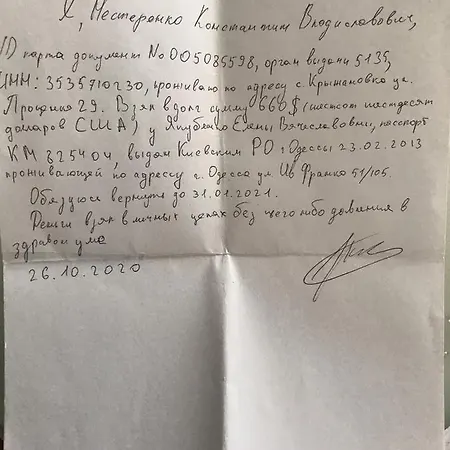 Я, Нестеренко Константин Владиславович,
ID карта документ No 005085598, орган выдачи 5135,
ИНН: 3535710230, проживаю по адресу с. Крыжановка ул.
29. Взял в долг сумму 660$ (шестсот шестдесят
доларов США) у Елены Вячеславовны, паспорт
КМ 825404, выдан Киевским РО г. Одессы 23.02.2013
проживающей по адресу г. Одесса ул. Ив Франко 51/105.
Обязуюсь вернуть до 31.01.2021.
Деньги взял в личных целях без чего либо давления в
здравом уме
26.10.2020